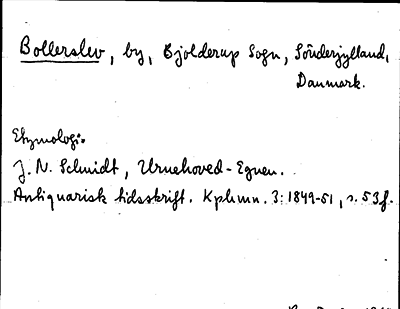 Bollerslev, by, Bjolderup Sogn, Sönderjylland,
Danmark.
Etymologi:
J. N. Schmidt, Urnehoved-Egnen.
Antiquarisk tidsskrift. Kphmn. 3: 1849-51, s. 53f.